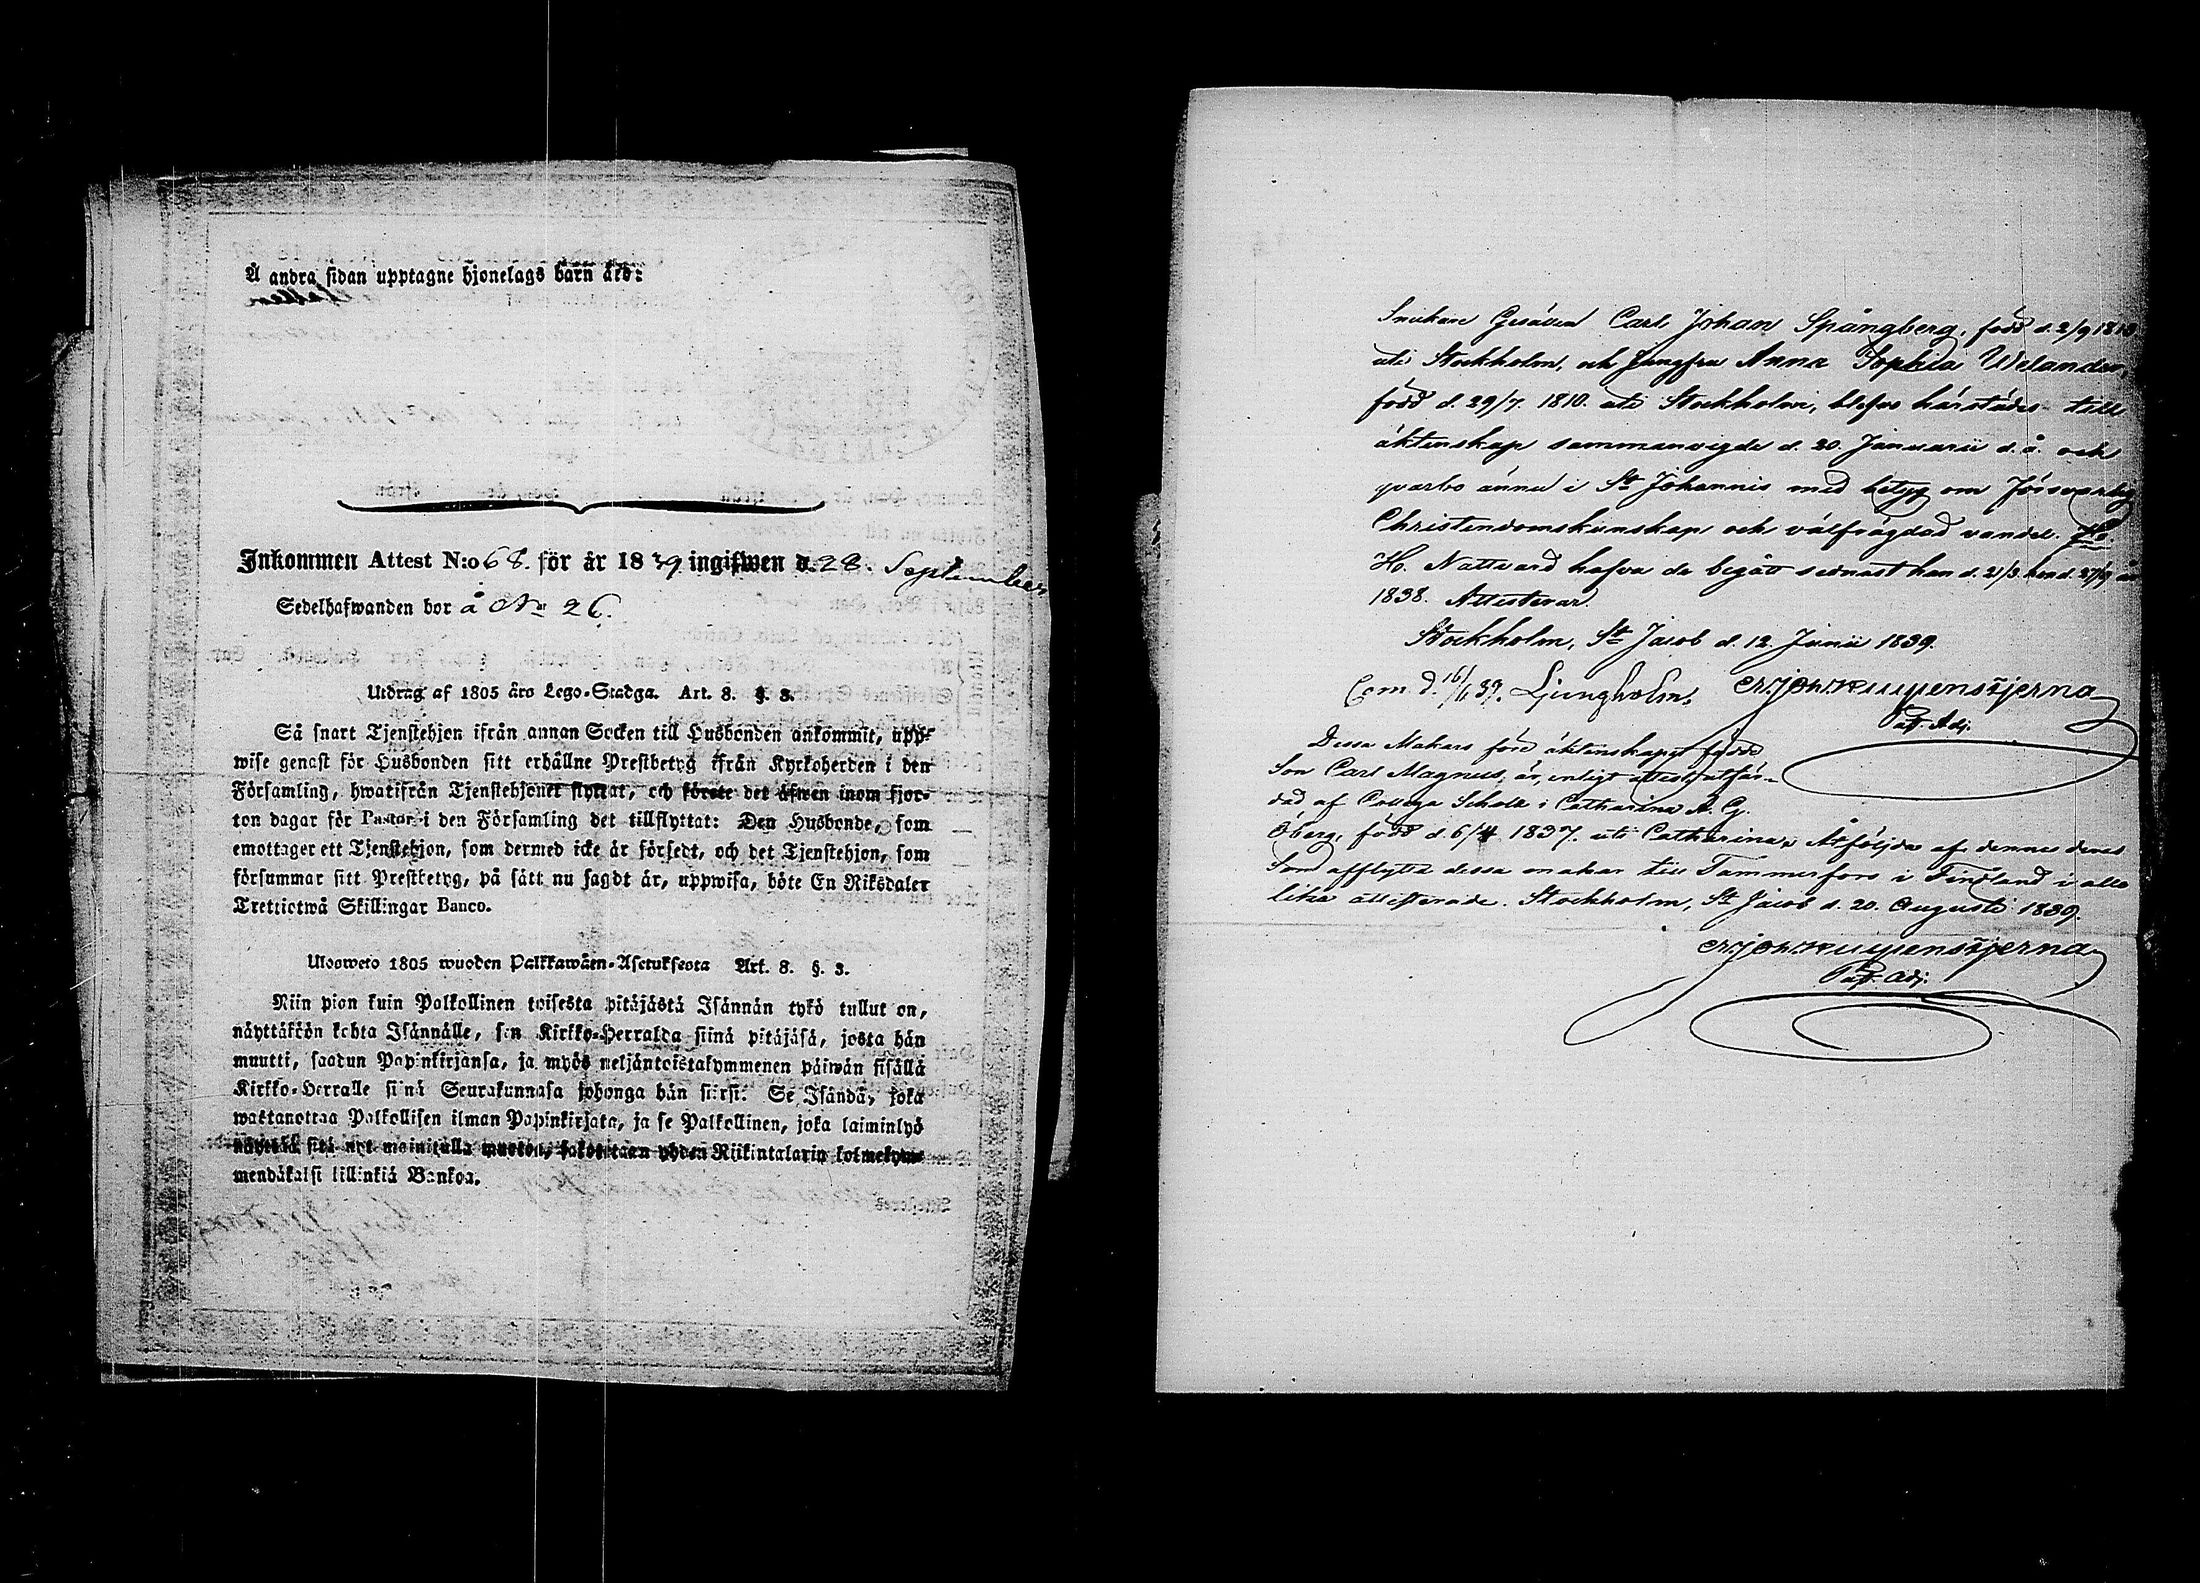 Å andra sidan upptagne hjonelags barn äro:
Inkommen Attest N:o 68. för år 1839 ingifwen d. 28. September
Sedelhafwanden bor å No 26.
Utdrag af 1805 års Lego-Stadga. Art. 8. §. 3.
Så snart Tjenstehjon ifrån annan Socken till Husbonden ankommit, upp-
wise genast för Husbonden sitt erhållne Prestbetyg ifrån Kyrkoherden i den
Församling, hwarifrån Tjenstehjonet flyttat, och förete det äfwen inom fjor-
ton dagar för Pastor i den Församling det tillflyttat: Den Husbonde, som
emottager ett Tjenstehjon, som dermed icke är försedt, och det Tjenstehjon, som
försummar sitt Prestbetyg, på sätt nu sagdt är, uppwisa, böte En Riksdaler
Trettiotwå Skillingar Banco.
Ulosweto 1805 wuoden Palkkawäen-Asetuksesta Art. 8. §. 3.
Niin pian kuin Palkollinen toisesta pitäjästä Isännän tykö tullut on,
näyttäköön kohta Isännälle, sen Kirkko-Herralda siinä pitäjäsä, josta hän
muutti, saadun Papinkirjansa, ja myös neljäntoistakymmenen päiwän sisällä
Kirkko-Herralle siinä Seurakunnasa johonga hän siirsi: Se Isändä, joka
wastanottaa Palkollisen ilman Papinkirjata, ja se Palkollinen, joka laiminlyö
näyttää sitä nyt mainitulla muodon, sakoitetaan yhden Riikintalarin kolmekym-
mendäkaksi killinkiä Bankoa.
Snickare Gesällen Carl Johan Spångberg, född d. 2/9 1813
uti Stockholm, och Jungfru Anna Sophia Welander,
född d. 29/7. 1810. uti Stockholm, blefvo härstädes till
äktenskap sammanvigde d. 20. Januarii d. å. och
qvarbo ännu i St Johannis med betyg om försvarlig
Christendomskunskap och välfrägdad vandel.
H. Nattvard hafva de begått sednast han d. 21/3. hon d. 27/9. år
1838. Attesterar.
Stockholm, St Jacob d. 12. Junii 1839.
Com. d. 16/6 39. Ljungholm.
Past. Adj.
Dessa Makars före äktenskapet födde
Son Carl Magnus, är, enligt attest utfär-
dad af Collega Scholæ i Catharina A. G.
Öberg, född d. 6/4 1837. uti Catharina. Åtföljde af denne deras
Son afflytta dessa makar till Tammerfors i Finland i allo
lika attesterade. Stockholm, St Jacob d. 20. Augusti 1839.
Past. Adj.